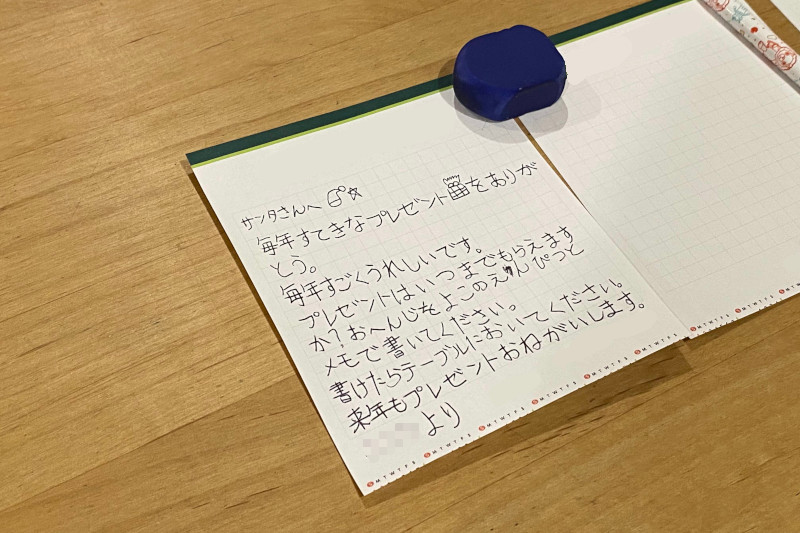 サンタさんへ
毎年すてきなプレゼントをありが
とう。
毎年すごくうれしいです。
プレゼントはいつまでもらえます
か?おへんじをよこのえんぴつと
メモで書いてください。
書けたらテーブルにおいてください。
来年もプレゼントおねがいします。
より
S M T W T F S S M T W T F S S M T W T F S S M T W T F S S M T W T F S